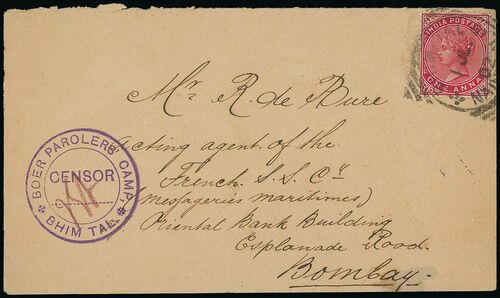 INDIA POSTAGE
ONE ANNA
Mr R. de Bure
Acting agent of the
French S.S. Cy
(Messageries maritimes)
Oriental Bank Building
Esplanade Road
Bombay.
BOER PAROLERS' CAMP.
CENSOR
BHIM TAL